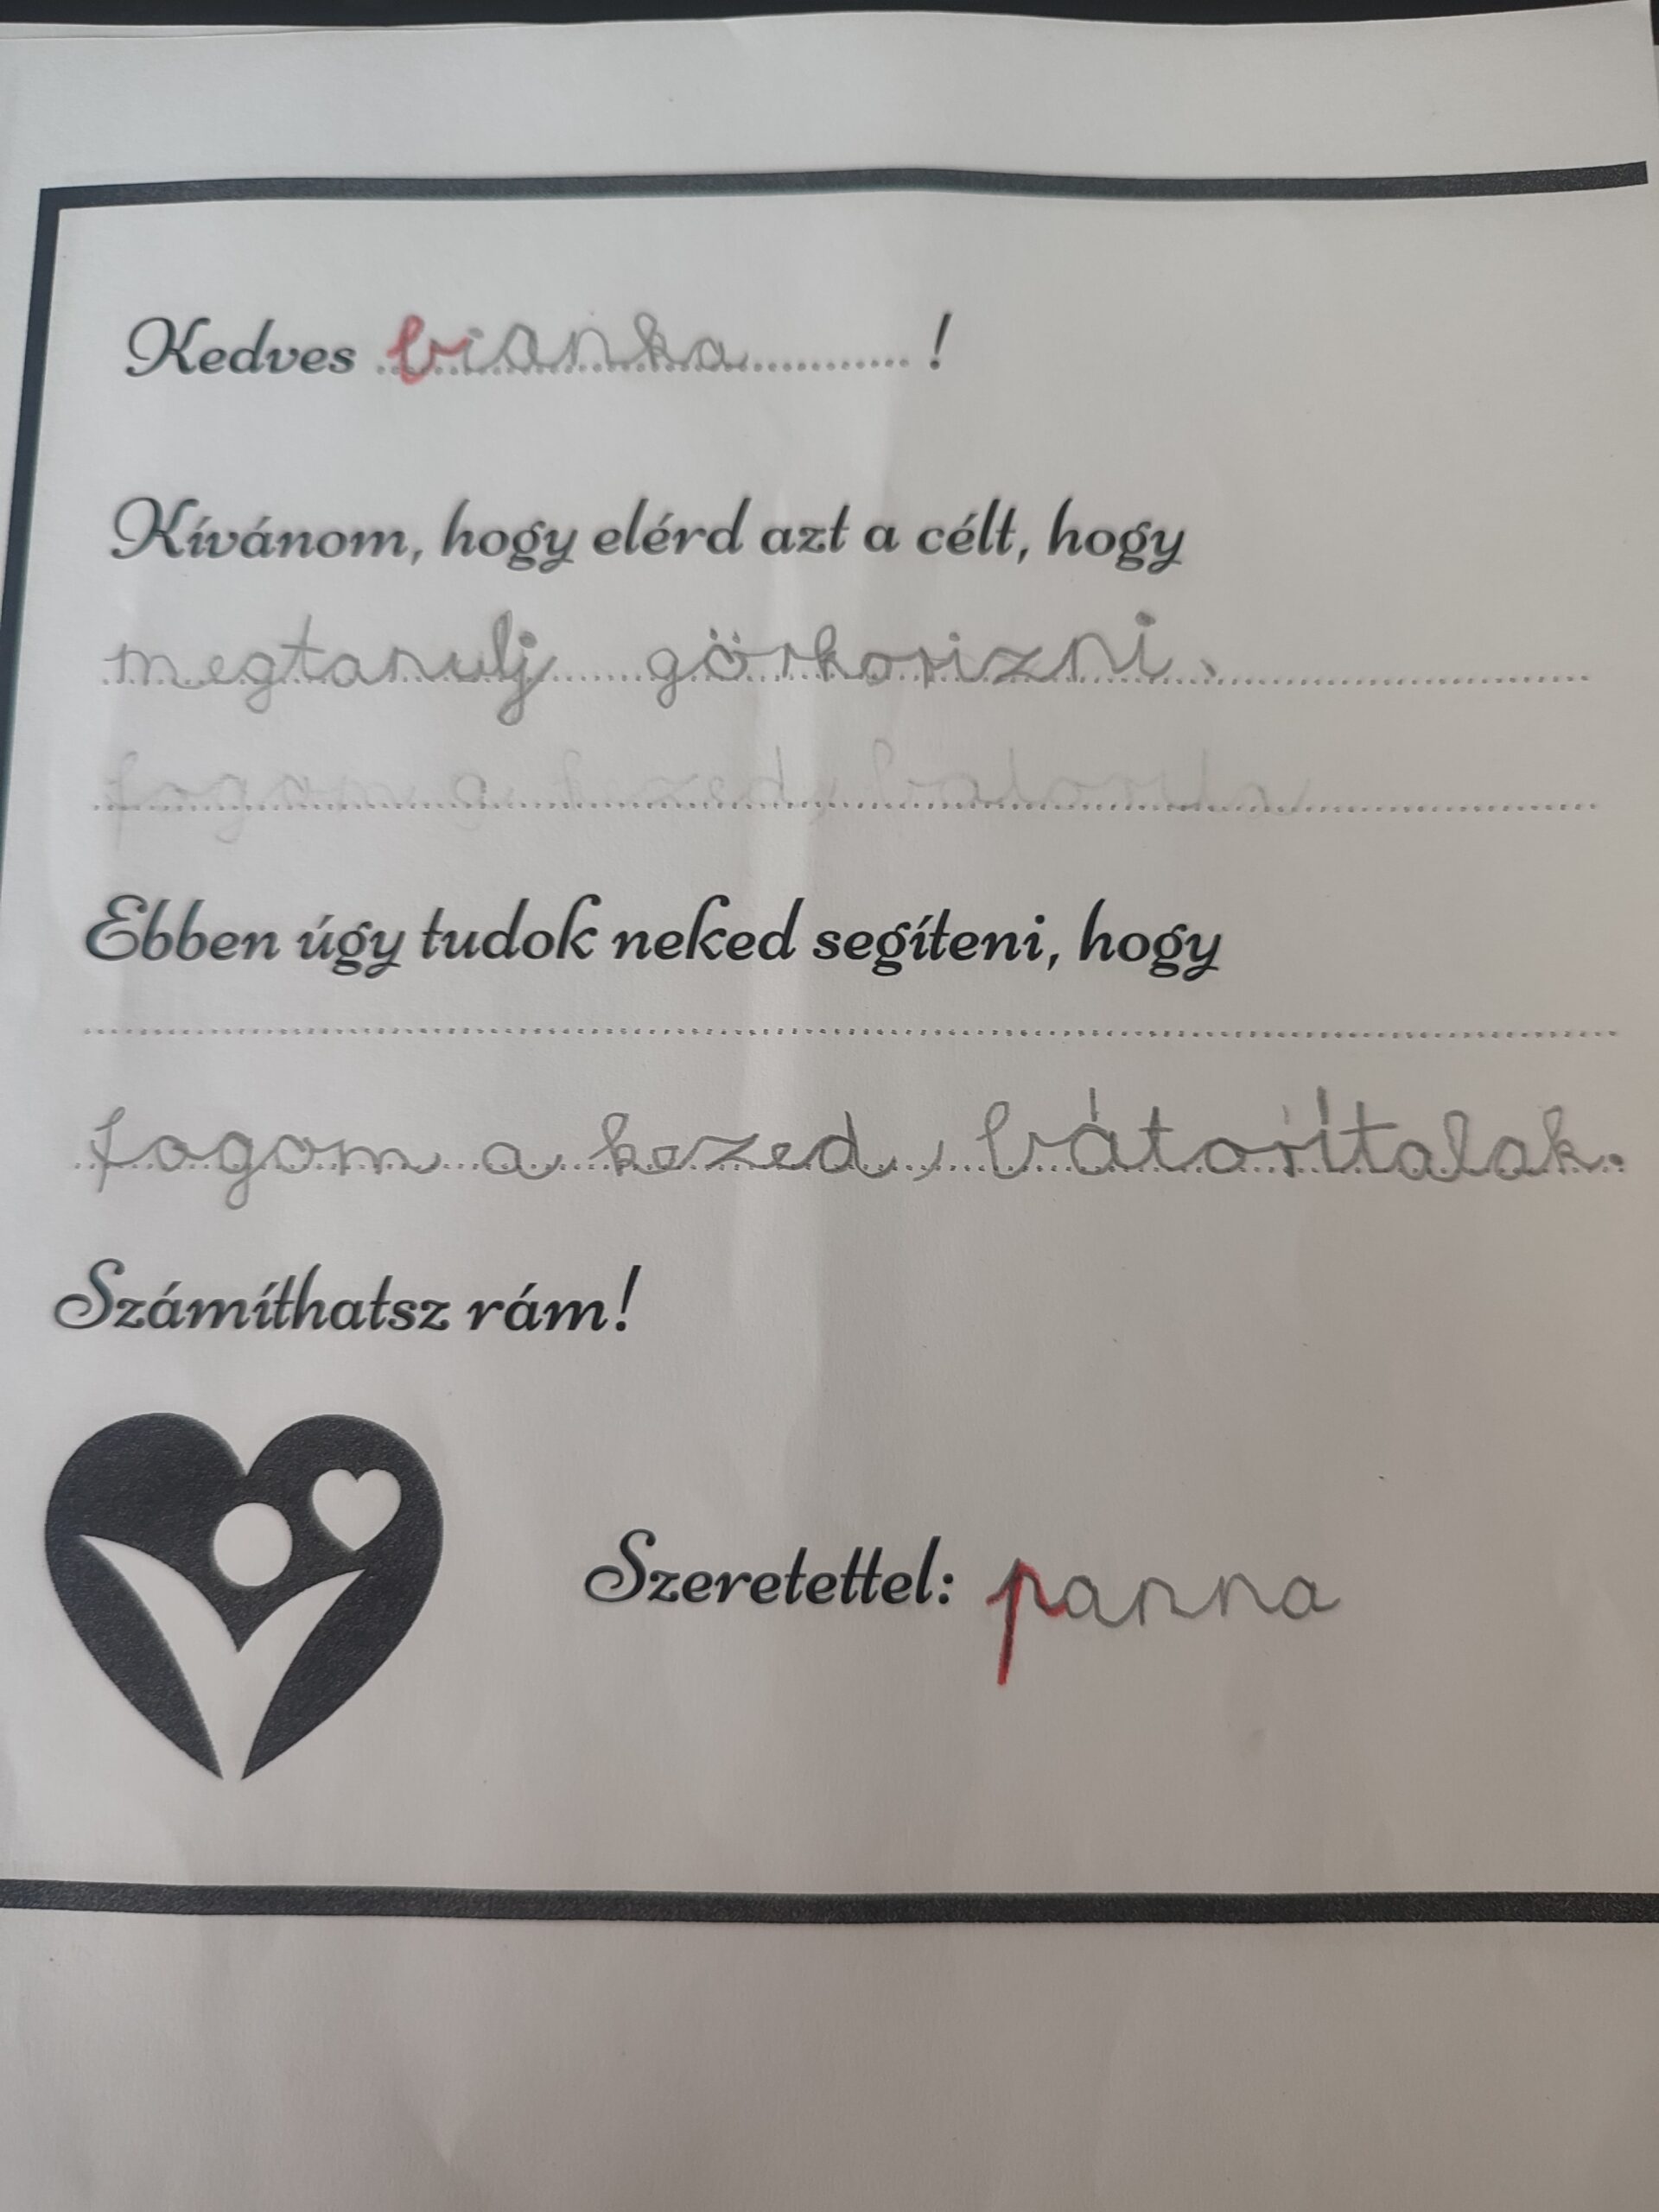 Kedves bianka !
Kívánom, hogy elérd azt a célt, hogy
megtanulj görkorizni.
fogom a kezed, bátorita
Ebben úgy tudok neked segíteni, hogy
fogom a kezed, bátorítalak.
Számíthatsz rám!
Szeretettel: panna